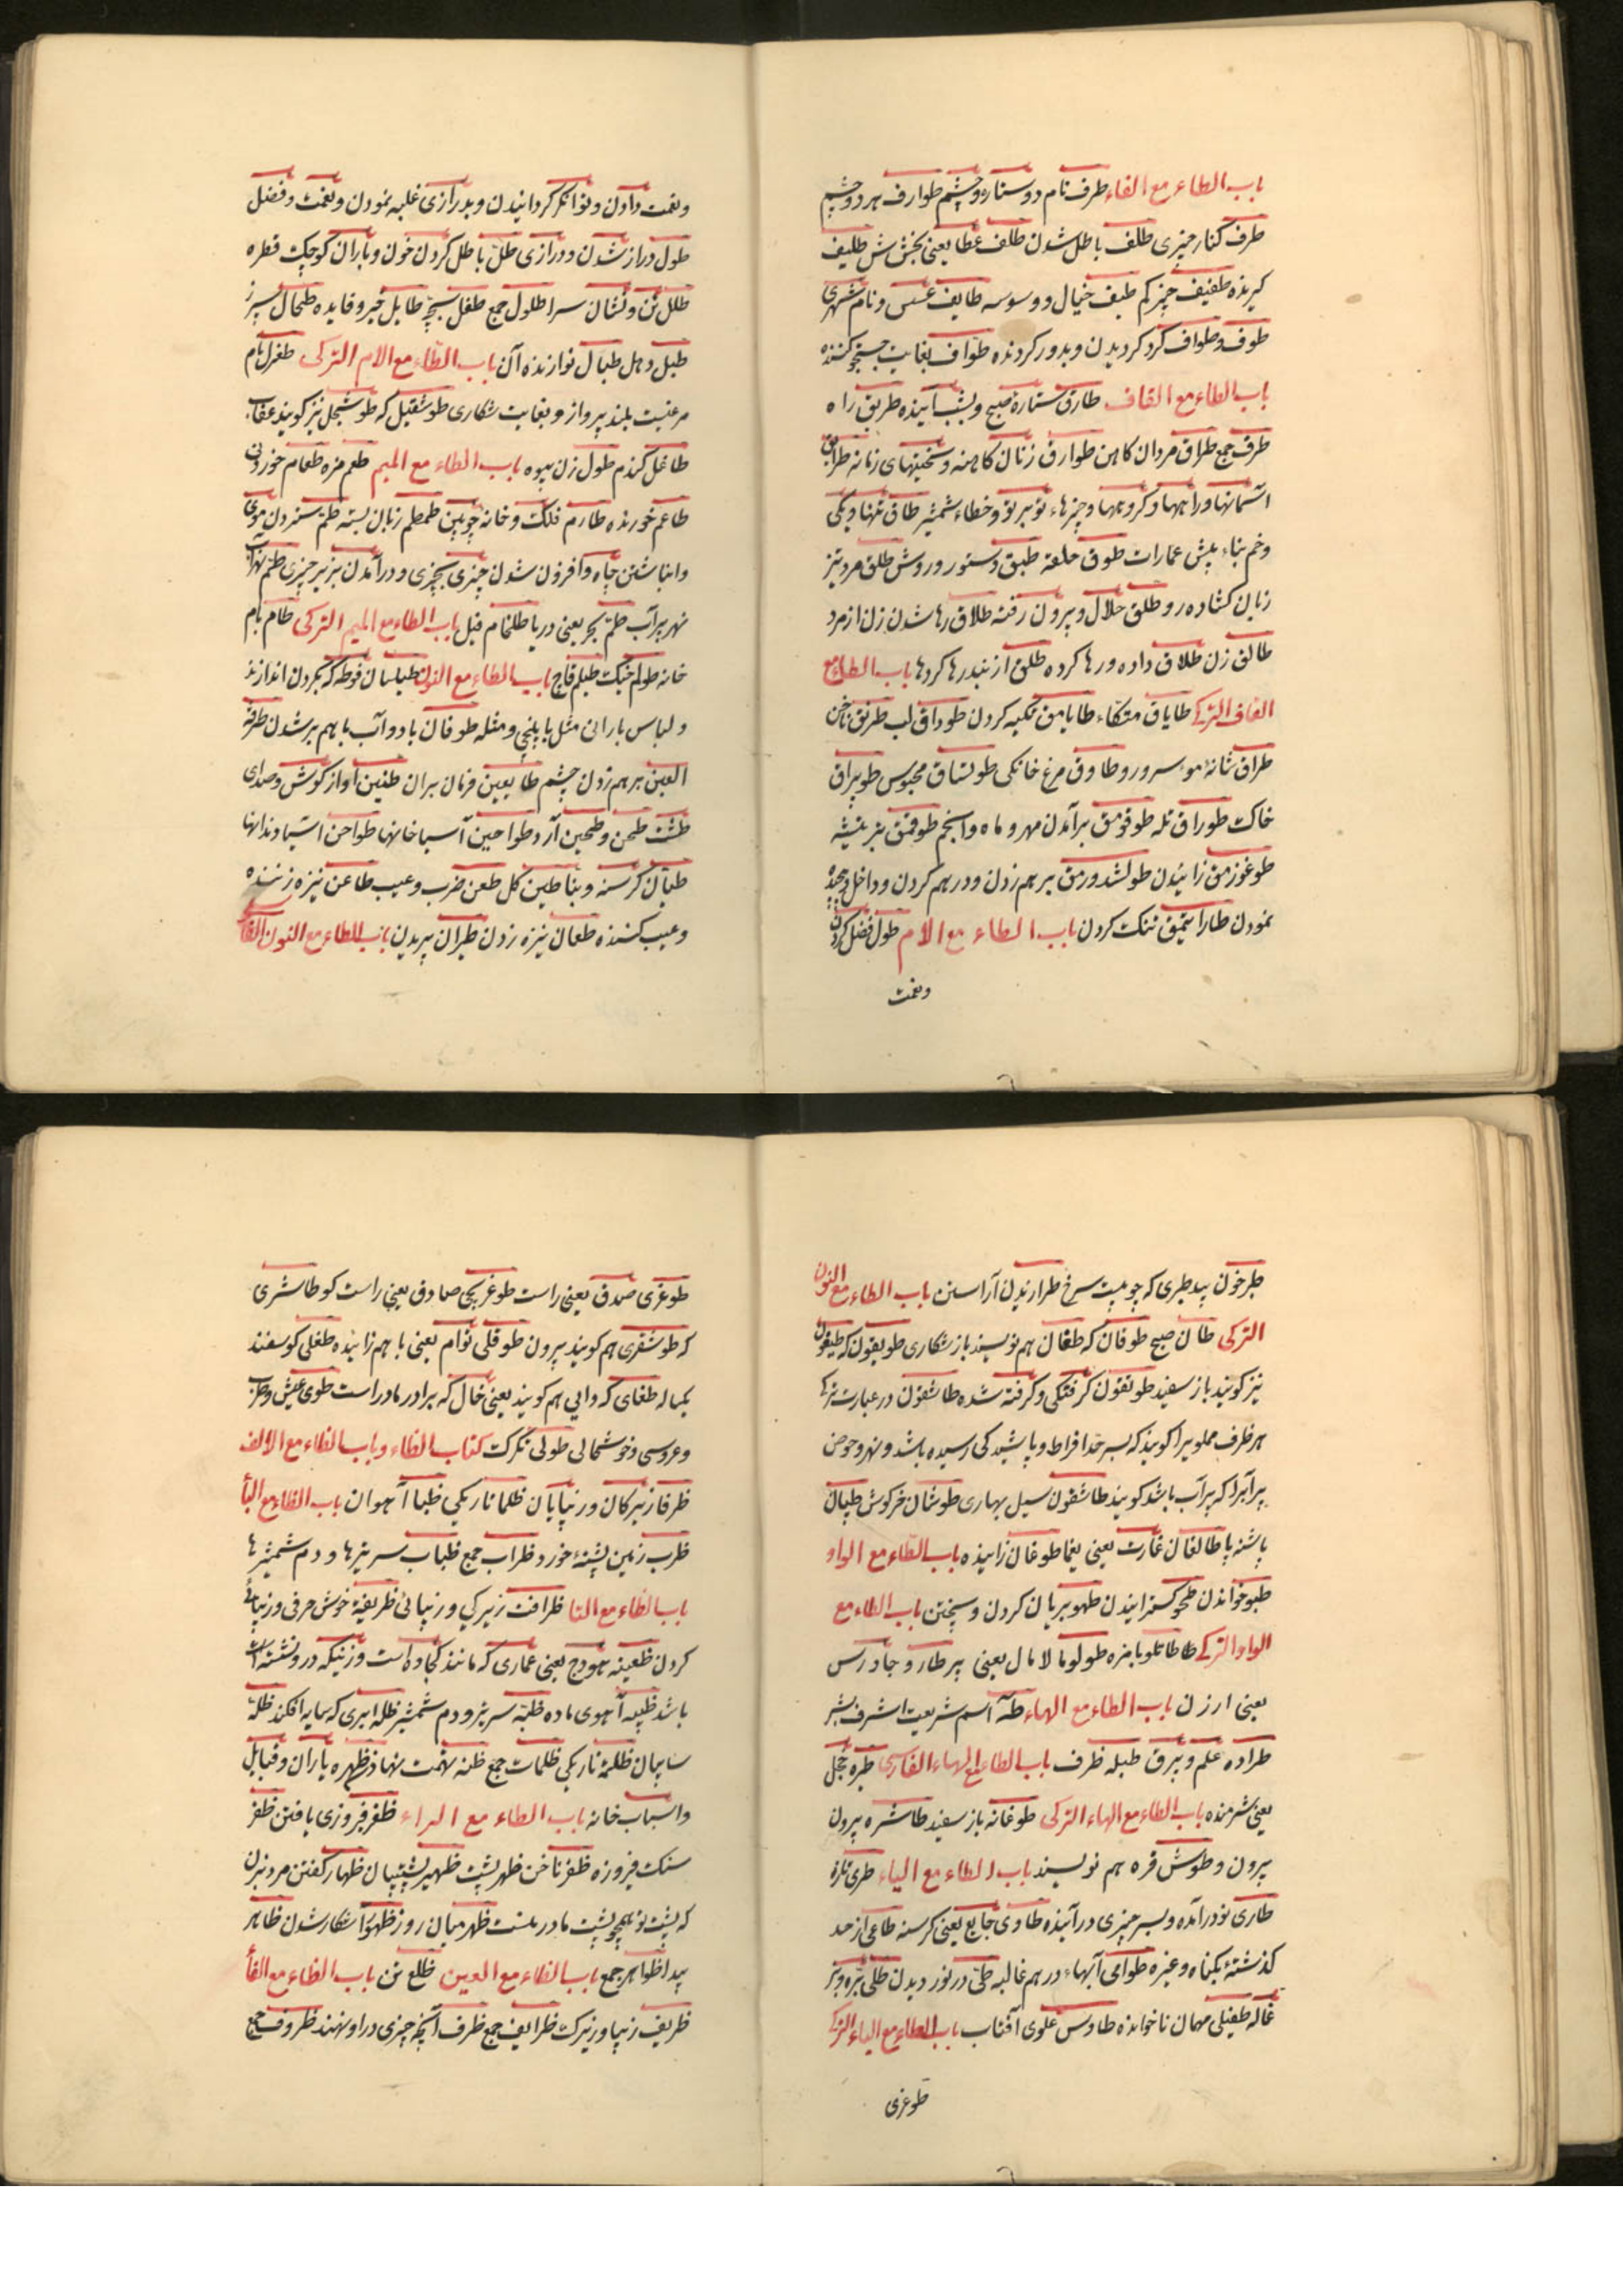 باب الطاء مع الفاء طرف نام دو ستاره و چشم طوارف هر دو چشم
طرف کنار چیزی طلف باطل شدن طلف عطا یعنی بخشش طلیف
کیرنده طفیف چیز کم طیف خیال و وسوسه طایف عسس و نام شهری
طوف و طواف کرد کردیدن و بدور کردنده طواف بغایت جستجو کننده
باب الطاء مع القاف طارق ستاره صبح و بشب آینده طریق راه
طرق جمع طراق مردان کاهن طوارق زنان کاهنه و سختیهای زمانه طرایق
آسمانها و راهها و کروهها و چیزهاء تو بر تو و خطاء شمشیر طاق تنها و یکی
و خم بناء پیش عمارات طوق حلقه طبق دستور و روش طلق مرد تیز
زبان کشاده رو طلق حلال و بیرون رفته طلاق رها شدن زن از مرد
طالق زن طلاق داده و رها کرده طلق از بند رها کردها باب الطاء مع
القاف الترکی طایاق متکاء طایامق تکیه کردن طوداق لب طرنق ناخن
طراق شانهٔ مو سر و رو طاوق مرغ خانکی طوتساق محبوس طوپراق
خاک طوراق تله طوقومق برآمدن مهر و ماه و انجم طوقمق نیز
طوغوزمق زائیدن طولشدورمق بر هم زدن و در هم کردن و داخل
نمودن طارایتمق تنک کردن باب الطاء مع الام طول فضل کردن
ونعمت
ونعمت دادن و توانکر کردانیدن و بدرازی غلبه نمودن و نعمت و فضل
طول دراز شدن و درازی طل باطل کردن خون و باران کوچک قطره
طلل تن و نشان سرا طلول جمع طفل بچه طایل خیر و فایده طحال سپرز
طبل دهل طبال نوازنده آن باب الطاء مع الام الترکی طغرل نام
مرغیست بلند پرواز و بغایت شکاری طوشقیل که طوشنجل نیز کویند عقاب
طاغل کندم طول زن بیوه باب الطاء مع المیم طعم مزه طعام خوردنی
طاعم خورنده طارم فلک و خانه چوبین طمطم زبان بسته طم ستردن موی
و انباشتن چاه و افزون شدن چیزی بچیزی و در آمدن بزیر چیزی طم
نهر پر آب طم بحر یعنی دریا طلخام فیل باب الطاء مع المیم الترکی طام بام
خانه طولم خیک طیلم قاج باب الطاء مع النون طیلسان فوطه که بکردن اندازند
و لباس بارانی مثل یاپنچی و مثله طوفان باد و آب با هم بر شدن طرفة
العین بر هم زدن چشم طایعین فرمان بران طنین آواز کوش و صدای
طشت طحن و طحین آرد طواحین آسیا خانها طواحن آسیا و دندانها
طیان کرسنه و بنا طین کل طعن ضرب و عیب طاعن نیزه زننده
و عیب کننده طعان نیزه زدن طیران پریدن باب الطاء مع النون
طبرخون بید طبری که چوبیست سرخ طرازیدن آراستن باب الطاء مع النون
الترکی طان صبح طوغان که طغان هم نویسند باز شکاری طویغون که طیغون
نیز کویند باز سفید طوتقون کرفتکی و کرفته شده طاشقون در عبارت ترکی
هر ظرف مملو پرا کویند که بسر حد افراط و پاشیدکی رسیده باشد و نهر و حوض
پر آبرا که پر آب باشد کویند طاشقون سیل بهاری طوشان خرکوش طپان
پاشنه پا طالغان غارت یعنی یغما طوغان زاییده باب الطاء مع الواو
طبو خواندن طحو کسترانیدن طهو بریان کردن و پختن باب الطاء مع
الواو الترکی طاطلو بامزه طولو مالامال یعنی پر طارو جاورس
یعنی ارزن باب الطاء مع الهاء طه اسم شریعت اشرف بشر
طراده علم و بیرق طبله ظرف باب الطاء مع الهاء الفارسی طیره خجل
یعنی شرمنده باب الطاء مع الهاء الترکی طوغانه باز سفید طاشره بیرون
بیرون و طوش قره هم نویسند باب الطاء مع الیاء طری تازه
طاری نو در آمده و بسر چیزی در آینده طاوی جایع یعنی کرسنه طاغی از حد
کذشتهٔ بکناه و غیره طوامی آبهاء در هم غالبه طی در نوردیدن طلی بره و بز
غاله طفیلی مهمان ناخوانده طاوس علوی آفتاب باب الطاء مع الیاء الترکی
طوغری
طوغری صدق یعنی راست طوغریجی صادق یعنی راست کو طاشری
که طوشقری هم کویند بیرون طوقلی توام یعنی با هم زاییده طغلی کوسفند
یکساله طغای که دایی هم کویند یعنی خال که برادر مادر است طوی عیش و طرب
و عروسی و خوشحالی طولی تکرک کتاب الظاء و باب الظاء مع الالف
ظرفا زیرکان و زیبایان ظلما تاریکی ظبا آهوان باب الظاء مع البأ
ظرب زمین پشتهٔ خورد ظراب جمع ظباب سر نیزها و دم شمشیرها
باب الظاء مع التا ظرافت زیرکی و زیبائی ظریفیة خوش حرفی و زیبائی
کردن ظعینه هودج یعنی عماری که مانند کجاوه است و زنیکه در و نشسته
باشد ظبیه آهوی ماده ظبّه سر نیز و دم شمشیر ظله ابری که سایه افکند ظلة
سایبان ظلمة تاریکی ظلمات جمع ظنه تهمت نهادن ظهره یاران و قبایل
و اسباب خانه باب الظاء مع الراء ظفر فیروزی یافتن ظفر
سنک فیروزه ظفر ناخن ظهر پشت ظهیر پشتیبان ظهار کفتن مرد بزن
که پشت تو همچو پشت مادر منست ظهر میان روز ظهور آشکار شدن ظاهر
پیدا ظواهر جمع باب الظاء مع العین ظلع تن باب الظاء مع الفأ
ظریف زیبا و زیرک ظرایف جمع ظرف آنچه چیزی در او نهند ظروف جمع